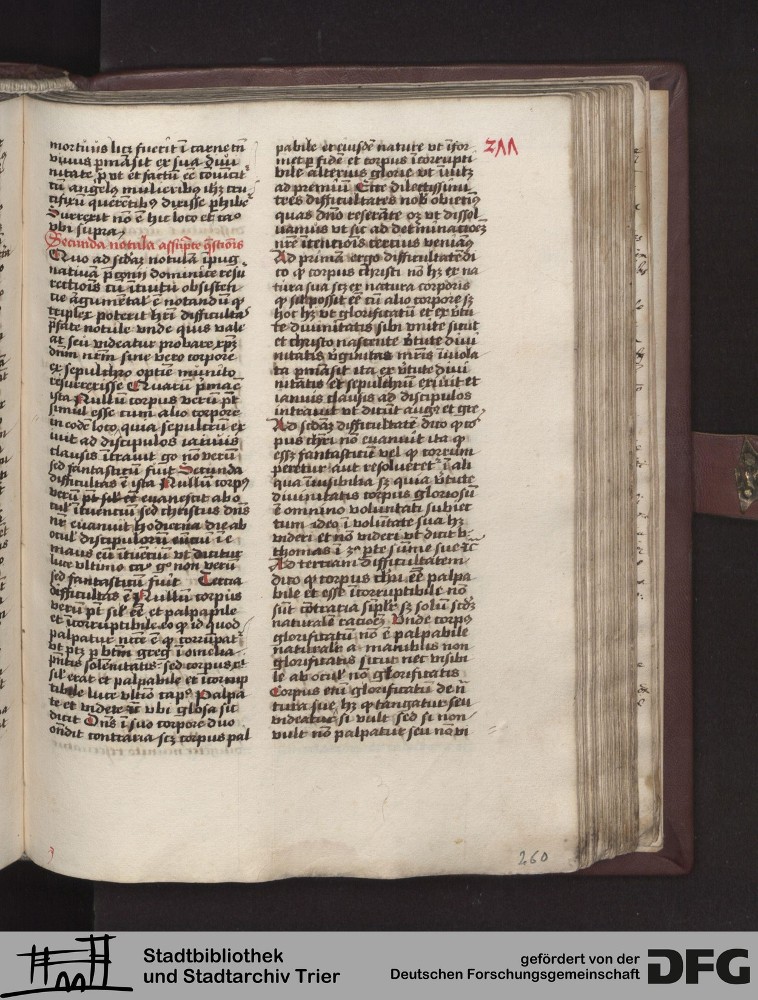 mortuus licz fuerit ī carne tn̄
vivus ꝑmāsit ex sua divi
nitate ꝓut et factū eē cōvicit̄
cū angelꝯ mulieribꝯ ihm cru
cifixū querētibꝯ dixisse ꝓhibet̄
Surrexit nō ē hic loco et caꝯ
vbi supra
Secunda notula assūpte q̄stiōis
Quo ad sc̄daꝫ notulā ī pug
resu
rectiōis cū
cie argumētal' ē notandū ꝙ
triplex poterit hr̄i difficultas
p̄fate notule vnde quis vale
at seu videatur probare xpm̄
dnm̄ nr̄m sine vero corpore
ex sepulchro optie munito
resurrexisse Quarū p̄ma ē
ista Nullū corpus verū pt̄
simul esse cum alio corpore
in eodē loco quia sepulcrū ex
iuit ad discipulos ianuis
clausis ītrauit gͦ nō verū
sed fantasticū fuit Secunda
difficultas ē ista Nullū corpꝯ
verū pt̄ sil' eē euanescit ab o
cul' ītuenciū sed christus dn̄s
nr̄ euanuit hodierna die ab
ocul' discipulorū euciū ī e
maus eū ītuēciū vt dicitur
luce vltimo caꝯ gͦ non verū
sed fantasticū fuit Tercia
difficultas ē Nullū corpus
verū pt̄ sil' eē et palpapile
et īcorruptibile eo ꝙ id quod
palpatur ē ꝙ corrūpat̄
vt ptꝫ ꝑ btm̄ gregͦ ī omelia
p̄ntis solēnitatis sed corpus xͥ
sil' erat et palpabile et īcorrup
tibile luce vltīo capꝯ Palpa
te et videte vbi glosa sic
dicit Dn̄s ī suo corpore duo
ondit contraria scꝫ corpus pal
pabile et eiusdē nature vt īfor
met ꝑ fidē et corpus īcorrupti
bile alterius glorie vt īuitꝫ
ad premiū Ecce dilectissimi
tres difficultates nob' obuenīꝯ
quas dn̄o reserāte oꝫ vt dissol
uamus vt sic ad determinacōeꝫ
nr̄e ītenciōis tercius veniāꝯ
Ad primā ergo difficultatē di
co ꝙ corpus christi nō hꝫ ex na
tura sua scꝫ ex natura corporis
ꝙ sil' possit eē cū alio corpore sꝫ
hoc hꝫ vt glorificatū et ex v̄tu
te divinitatis sibi vnite sicut
et christo nascente v̄tute diui
nitatis v̄ginitas mr̄is īuiola
ta ꝑmāsit ita ex v̄tute diui
nitatis et sepulchrū exiuit et
ianuis clausis ad discipulos
intrauit vt dicūt augꝯ et gregͦ
Ad sc̄daꝫ difficultatē dico ꝙ co
pus chri nō euanuit ita ꝙ
esset fantasticū vel ꝙ corrum
peretur aut resolueret ī ali
qua īuisibilia sꝫ quia v̄tute
diuinitatis corpus gloriosū
ē omnino voluntati subiec
tum ideo ī volūtate sua hꝫ
videri et nō videri vt dicit b.
thomas ī 3ª pte sūme sue ꝛc
Ad terciam difficultatem
dico ꝙ corpus chri eē palpa
bile et esse īcorruptibile nō
sūt cōtraria siplr̄ sꝫ solū scdꝫ
naturalē racōeꝫ Vnde corpꝯ
glorificatū nō ē palpabile
naturalr̄ a manibus non
glorificatis sicut nec visibi
le ab ocul' nō glorificatis
Corpus etiā glorificatū de n
tura sue hꝫ ꝙ tangatur seu
videatur si vult sed si non
vult nō palpatur seu nō vi
260
Stadtbibliothek
und Stadtarchiv Trier
gefördert von der
Deutschen Forschungsgemeinschaft
DFG